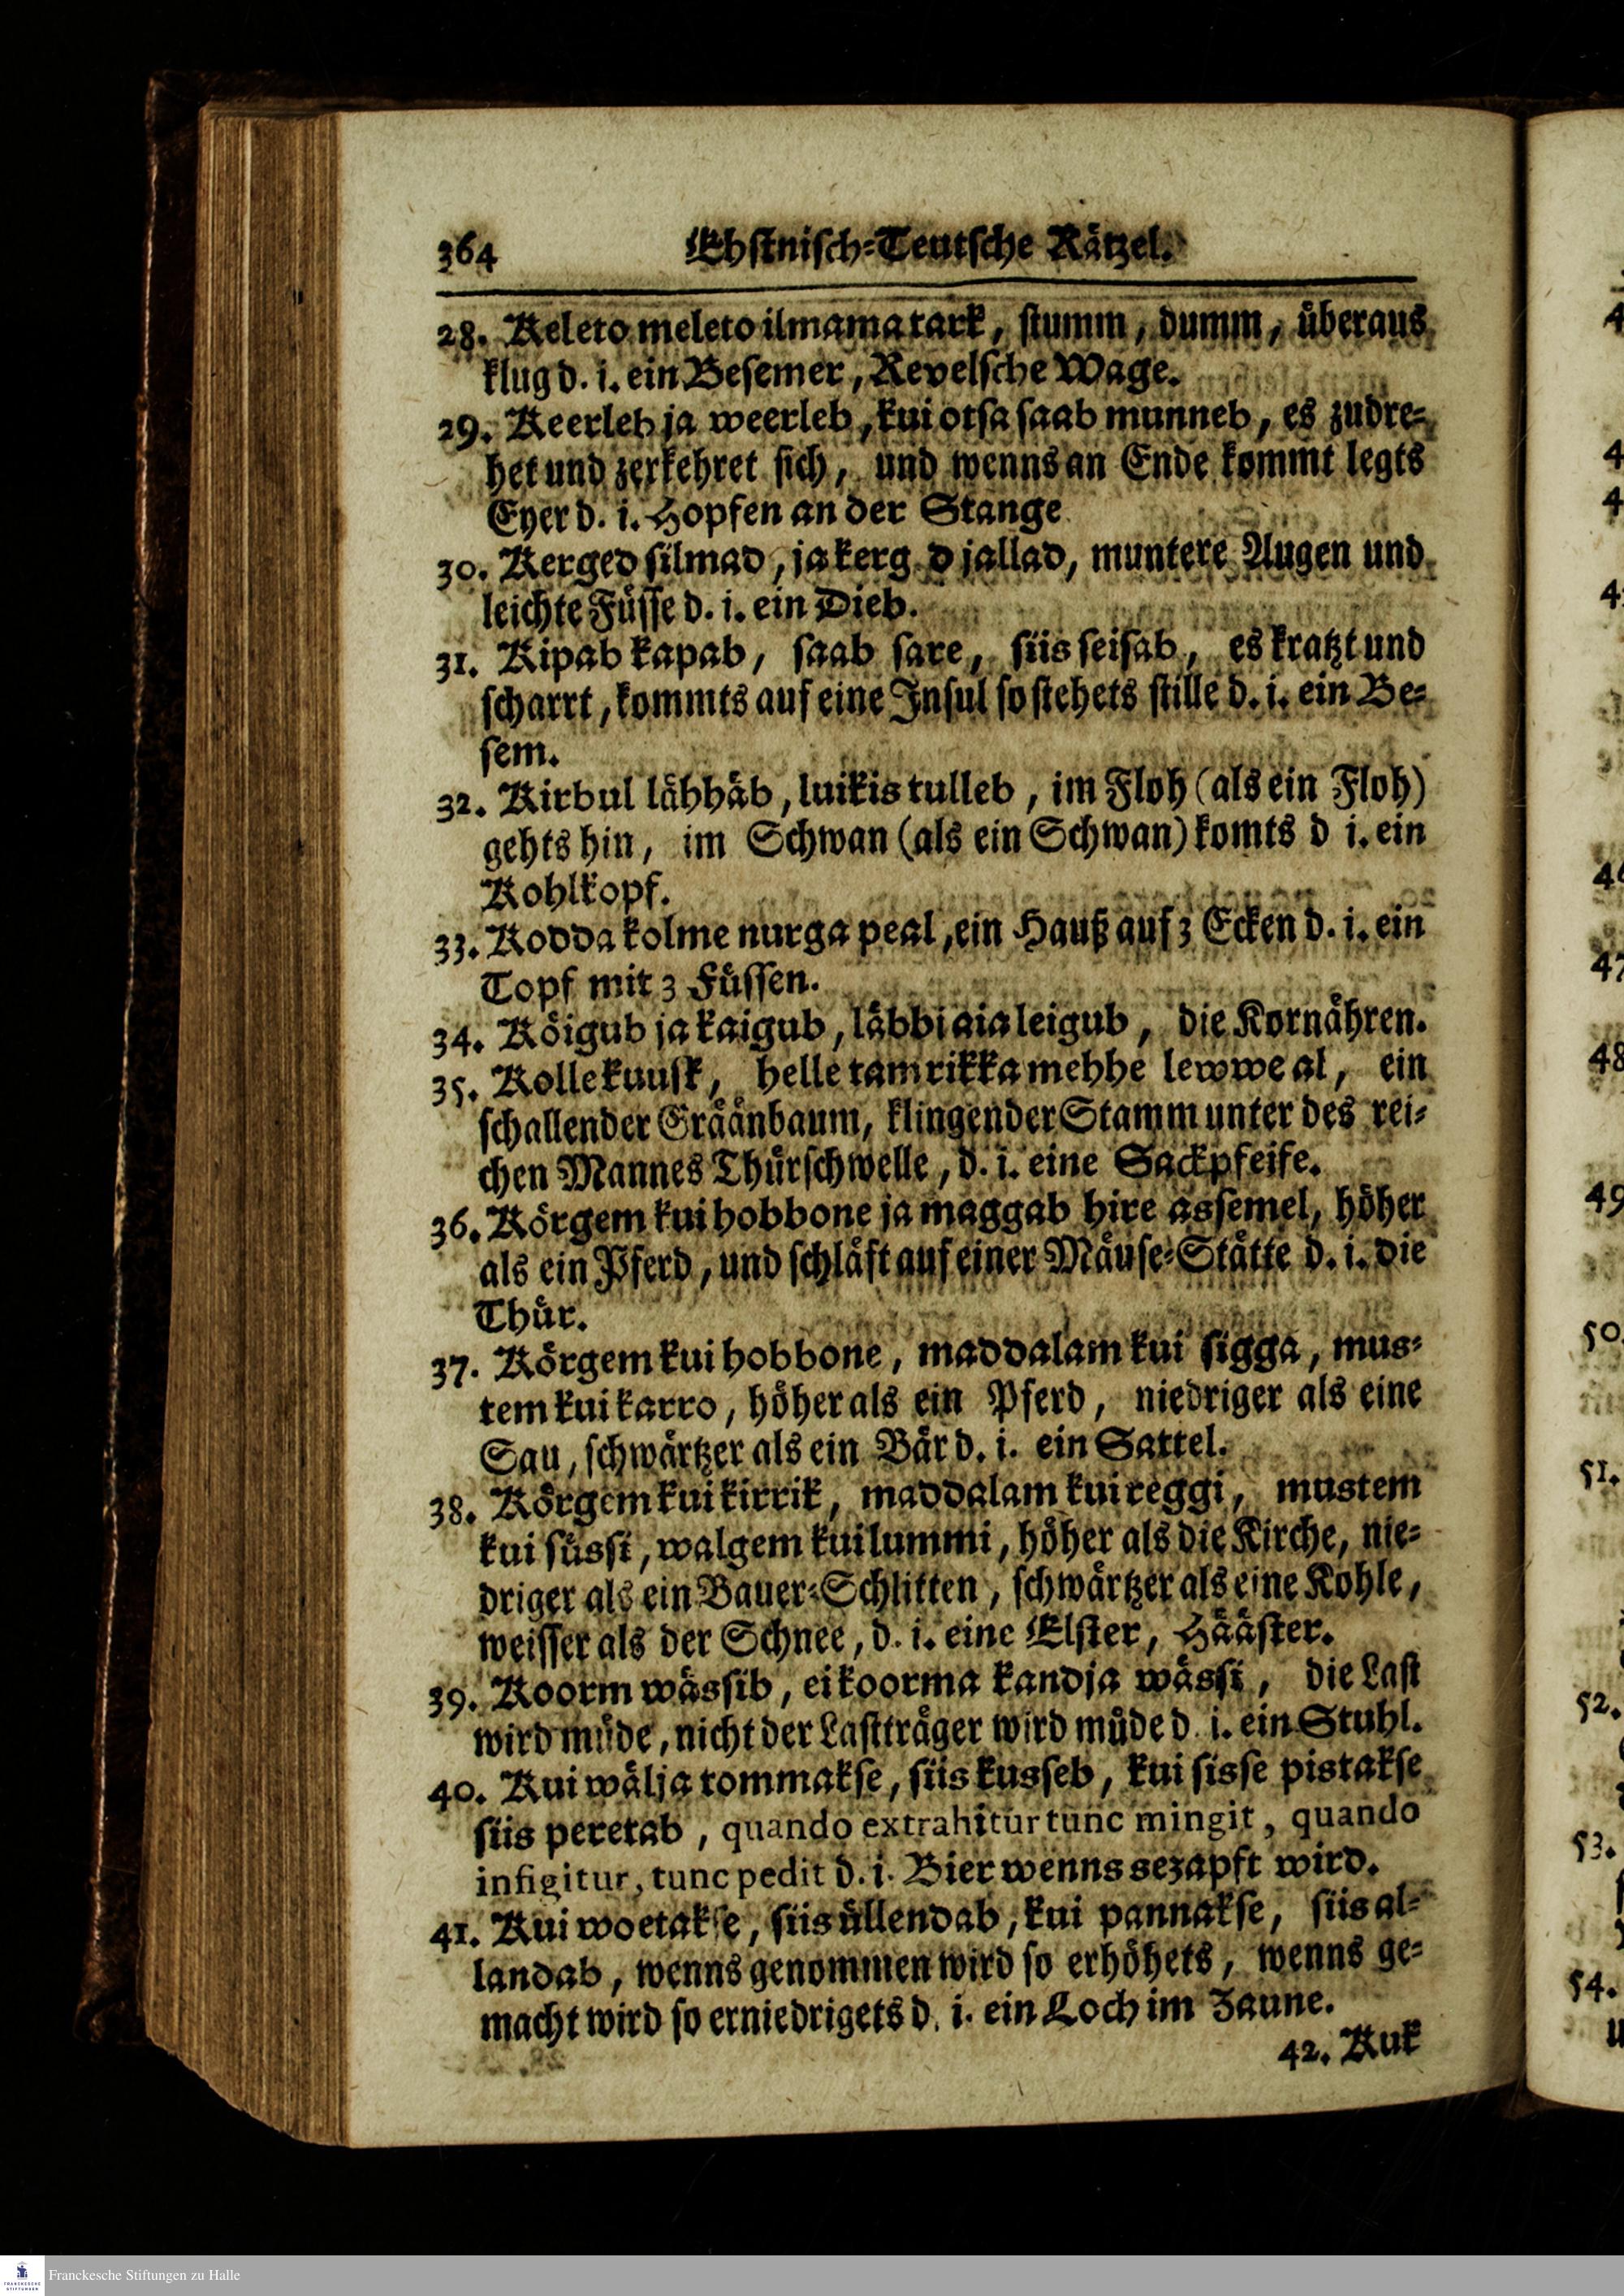 364 Ehstnisch-Teutsche Rätzel.
28. Keleto meleto ilmama tark, stumm, dumm, überaus
klug d. i. ein Besemer, Revelsche Wage.
29. Keerleb ja weerleb, kui otsa saab munneb, es zudre-
het und zerkehret sich, und wenns an Ende kommt legts
Eyer d. i. Hopfen an der Stange
30. Kerged silmad, ja kerg d jallad, muntere Augen und
leichte Füsse d. i. ein Dieb.
31. Kipab kapab, saab sare, siis seisab, es kratzt und
scharrt, kommts auf eine Insul so stehets stille d. i. ein Be-
sem.
32. Kirbul lähhäb, luikis tulleb, im Floh (als ein Floh)
gehts hin, im Schwan (als ein Schwan) komts d i. ein
Kohlkopf.
33. Kodda kolme nurga peal, ein Hauß auf 3 Ecken d. i. ein
Topf mit 3 Füssen.
34. Köigub ja kaigub, läbbi aia leigub, die Kornähren.
35. Kolle kuusk, helle tam rikka mehhe lewwe al, ein
schallender Gräänbaum, klingender Stamm unter des rei-
chen Mannes Thürschwelle, d. i. eine Sackpfeife.
36. Körgem kui hobbone ja maggab hire assemel, höher
als ein Pferd, und schläft auf einer Mäuse-Stätte d. i. die
Thür.
37. Körgem kui hobbone, maddalam kui sigga, mus-
tem kui karro, höher als ein Pferd, niedriger als eine
Sau, schwärtzer als ein Bär d. i. ein Sattel.
38. Körgem kui kirrik, maddalam kui reggi, mustem
kui süssi, walgem kui lummi, höher als die Kirche, nie-
driger als ein Bauer-Schlitten, schwärtzer als eine Kohle,
weisser als der Schnee, d. i. eine Elster, Hääster.
39. Koorm wässib, ei koorma kandja wässi, die Last
wird müde, nicht der Lastträger wird müde d. i. ein Stuhl.
40. Kui wälja tommakse, siis kusseb, kui sisse pistakse
siis peretab, quando extrahitur tunc mingit, quando
infigitur, tunc pedit d. i. Bier wenns gezapft wird.
41. Kui woetakse, siis üllendab, kui pannakse, siis al-
landab, wenns genommen wird so erhöhets, wenns ge-
macht wird so erniedrigets d. i. ein Loch im Zaune.
42. Kuk
Franckesche Stiftungen zu Halle